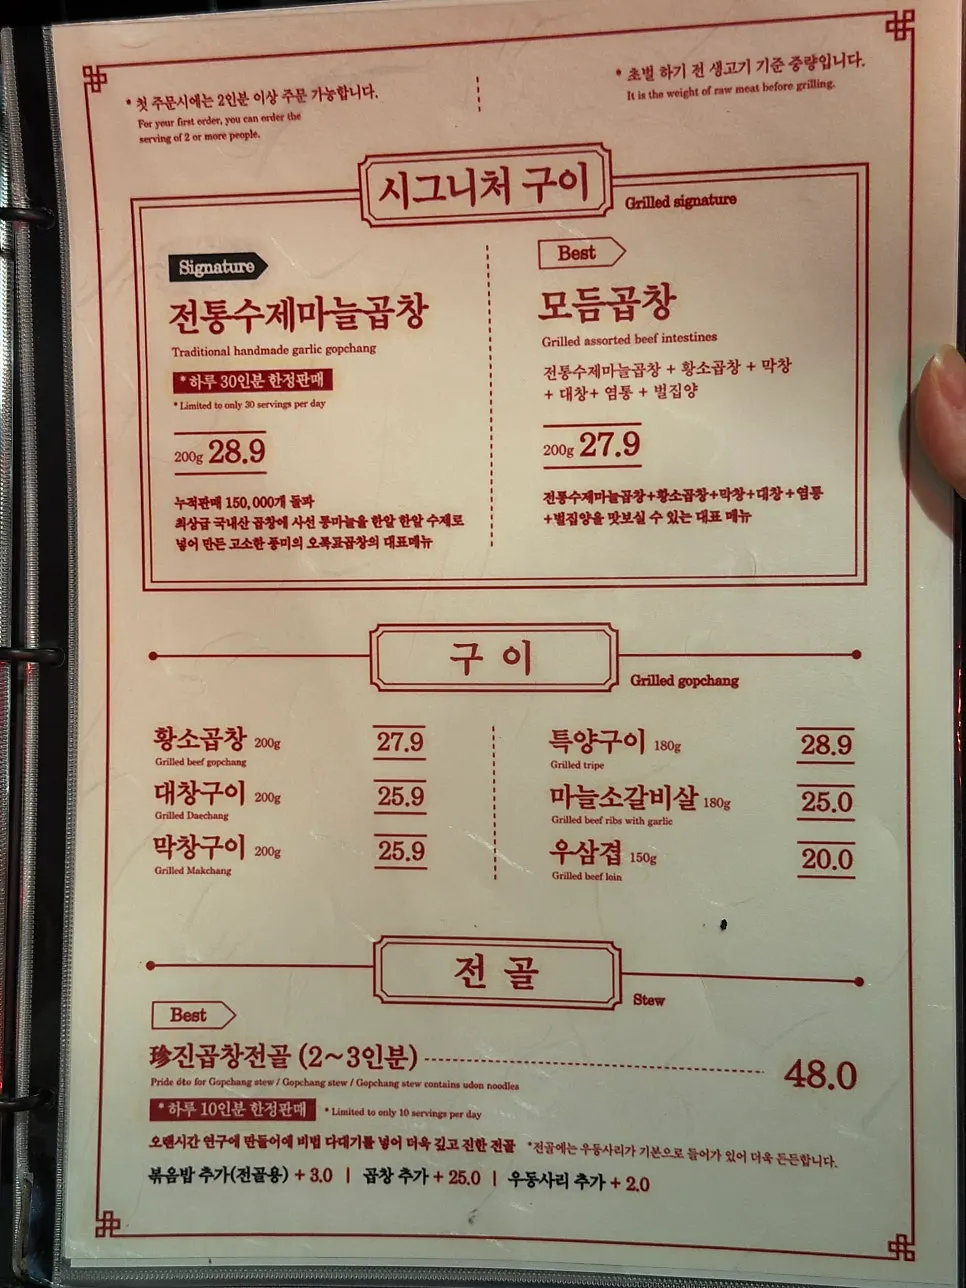 * 첫 주문시에는 2인분 이상 주문 가능합니다.
For your first order, you can order the
serving of 2 or more people.
* 초벌 하기 전 생고기 기준 중량입니다.
It is the weight of raw meat before grilling.
시그니처 구이
Grilled signature
Signature
전통수제마늘곱창
Traditional handmade garlic gopchang
* 하루 30인분 한정판매
* Limited to only 30 servings per day
200g 28.9
누적판매 150,000개 돌파
최상급 국내산 곱창에 사선 통마늘을 한알 한알 수제로
넣어 만든 고소한 풍미의 오복표곱창의 대표메뉴
Best
모듬곱창
Grilled assorted beef intestines
전통수제마늘곱창 + 황소곱창 + 막창
+ 대창+ 염통 + 벌집양
200g 27.9
전통수제마늘곱창+황소곱창+막창+대창+염통
+벌집양을 맛보실 수 있는 대표 메뉴
구 이
Grilled gopchang
황소곱창 200g 27.9
Grilled beef gopchang
대창구이 200g 25.9
Grilled Daechang
막창구이 200g 25.9
Grilled Makchang
특양구이 180g 28.9
Grilled tripe
마늘소갈비살 180g 25.0
Grilled beef ribs with garlic
우삼겹 150g 20.0
Grilled beef loin
전 골
Stew
Best
珍진곱창전골 (2~3인분) 48.0
Pride óto for Gopchang stew / Gopchang stew / Gopchang stew contains udon noodles
* 하루 10인분 한정판매 * Limited to only 10 servings per day
오랜시간 연구에 만들어에 비법 다대기를 넣어 더욱 깊고 진한 전골 *전골에는 우동사리가 기본으로 들어가 있어 더욱 든든합니다.
볶음밥 추가(전골용) + 3.0 | 곱창 추가 + 25.0 | 우동사리 추가 + 2.0